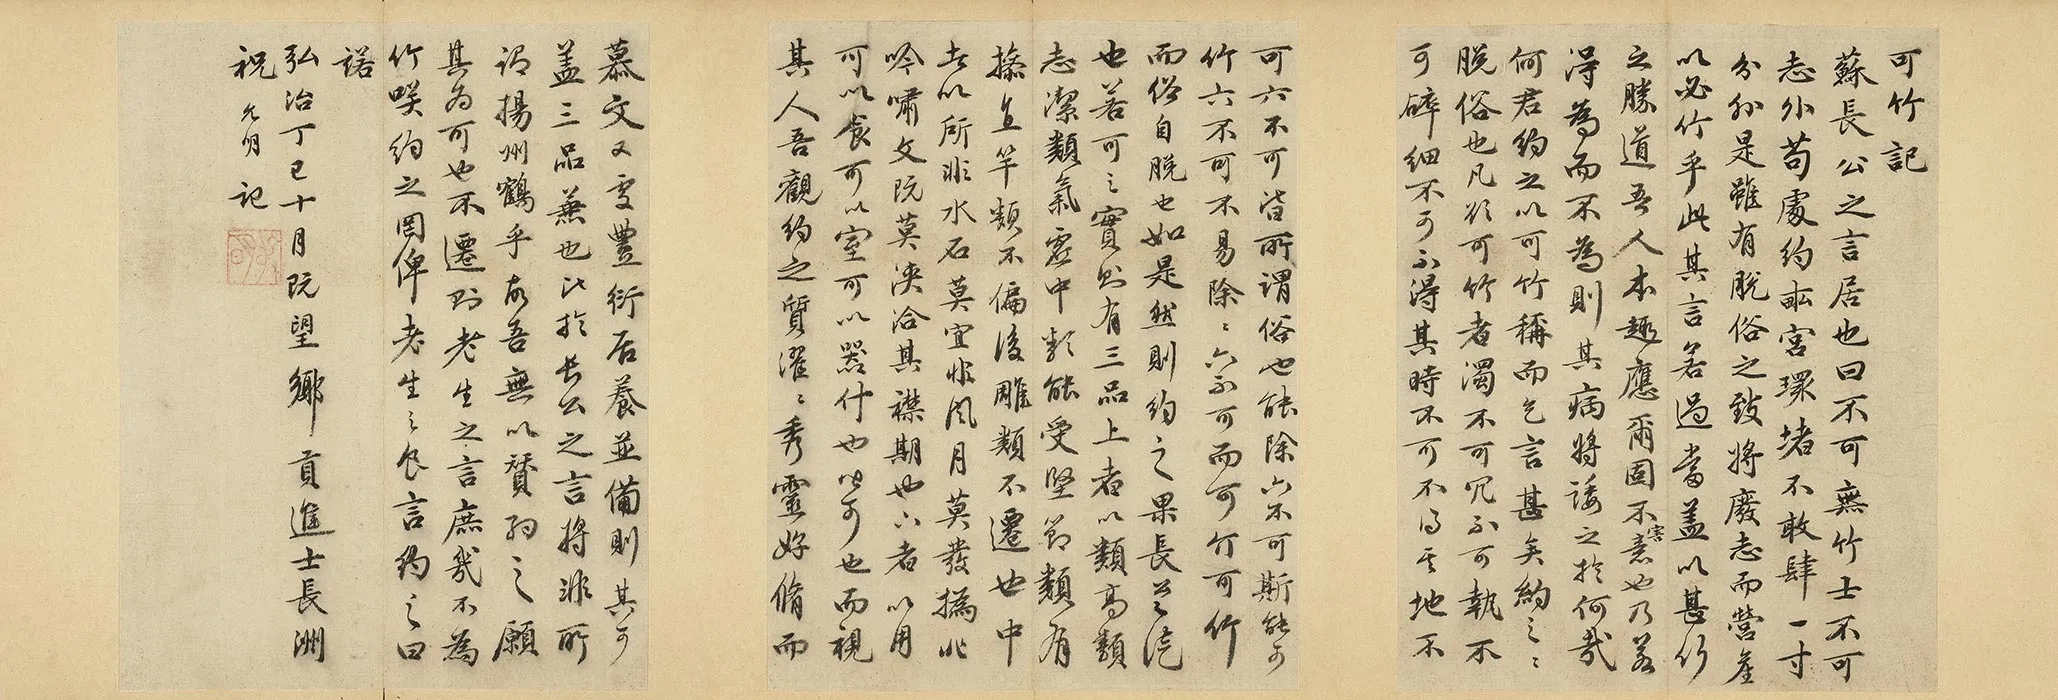 可竹記
蘇長公之言居也曰不可無竹士不可
志外苟處約畝宮環堵不敢肆一寸
分外是雖有脫俗之致將廢志而營產
以必竹乎此其言若過當蓋以甚行
之勝道吾人本趣應爾固不害意也乃若
得為而不為則其病將諉之於何哉
何君約之以可竹稱而乞言甚矣約之之
脫俗也凡欲可竹者濁不可冗不可執不
可碎細不可不得其時不可不得其地不
可六不可皆所謂俗也能除六不可斯能可
竹六不可不易除除六不可而可竹可竹
而俗自脫也如是然則約之果長公徒
也若可之實則有三品上者以類高類
志潔類氣虛中類能受堅節類有
操直竿類不偏後雕類不遷也中
者以所非水石莫宜非風月莫發撝非
吟嘯文阮莫浹洽其襟期也下者以用
可以食可以室可以器什也皆可也而視
其人吾觀約之質濯濯秀靈好脩而
慕文又受豐衍居養並備則其可
蓋三品兼也比於長公之言將非所
謂揚州鶴乎故吾無以贊約之願
其為可也不遷則老生之言庶幾不為
竹咲約之罔俾老生之食言約之曰
諾
弘治丁巳十月既望鄉貢進士長洲
祝允明記